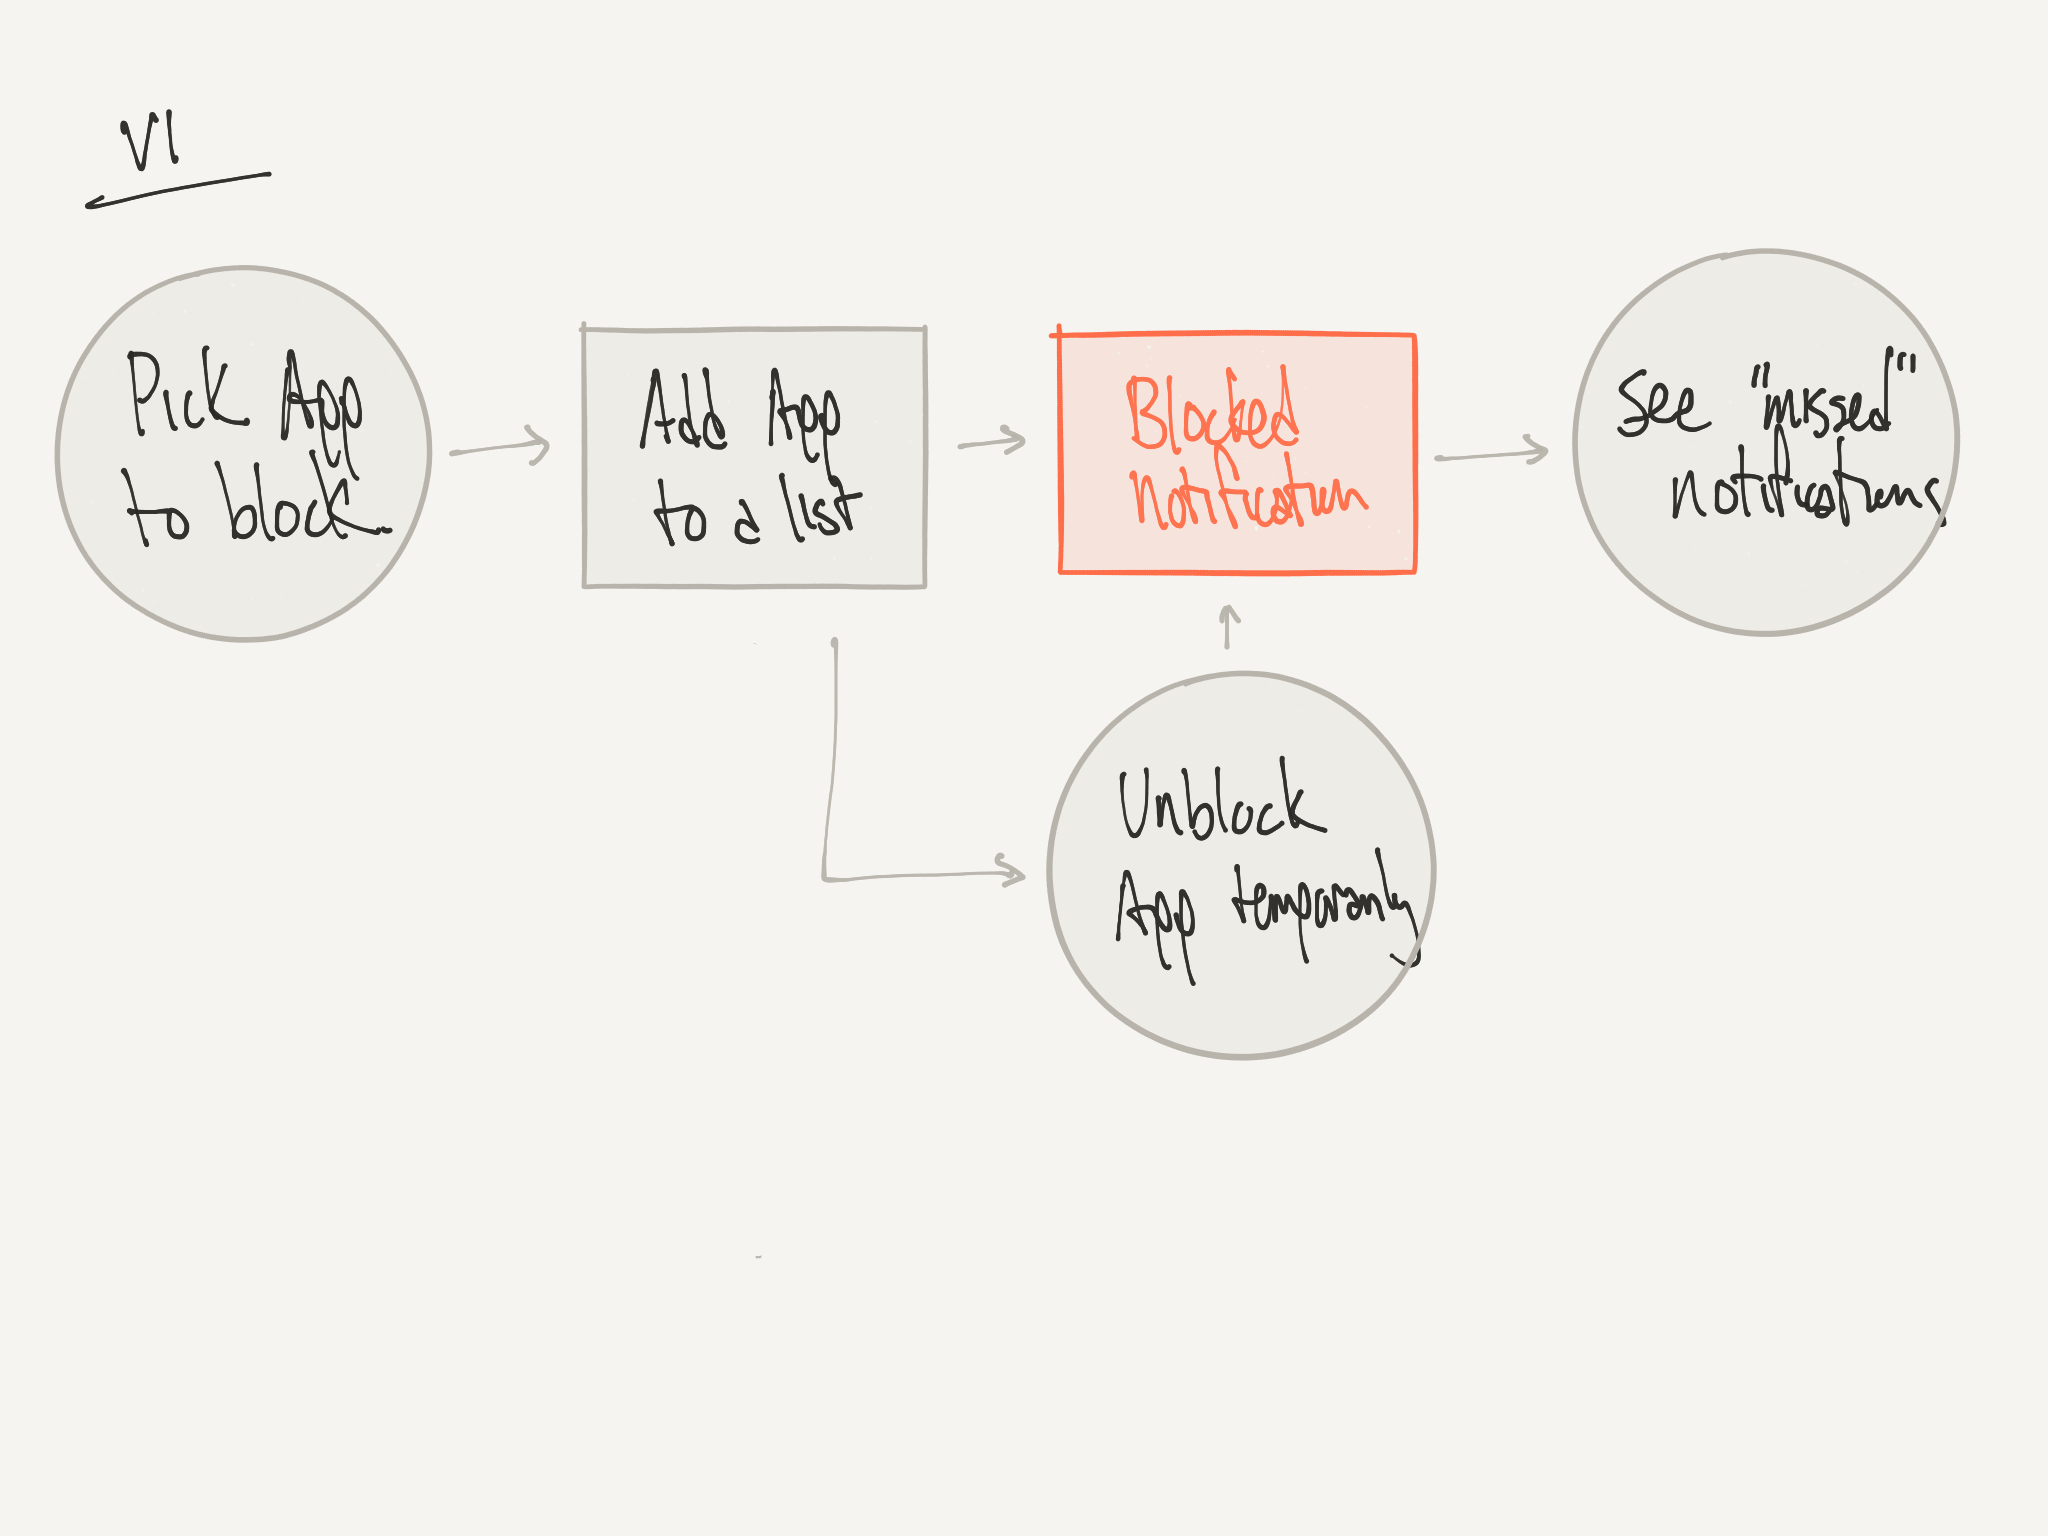 V1
Pick App
to block
Add App
to a list
Blocked
notification
See "missed"
notifications
Unblock
App temporarily